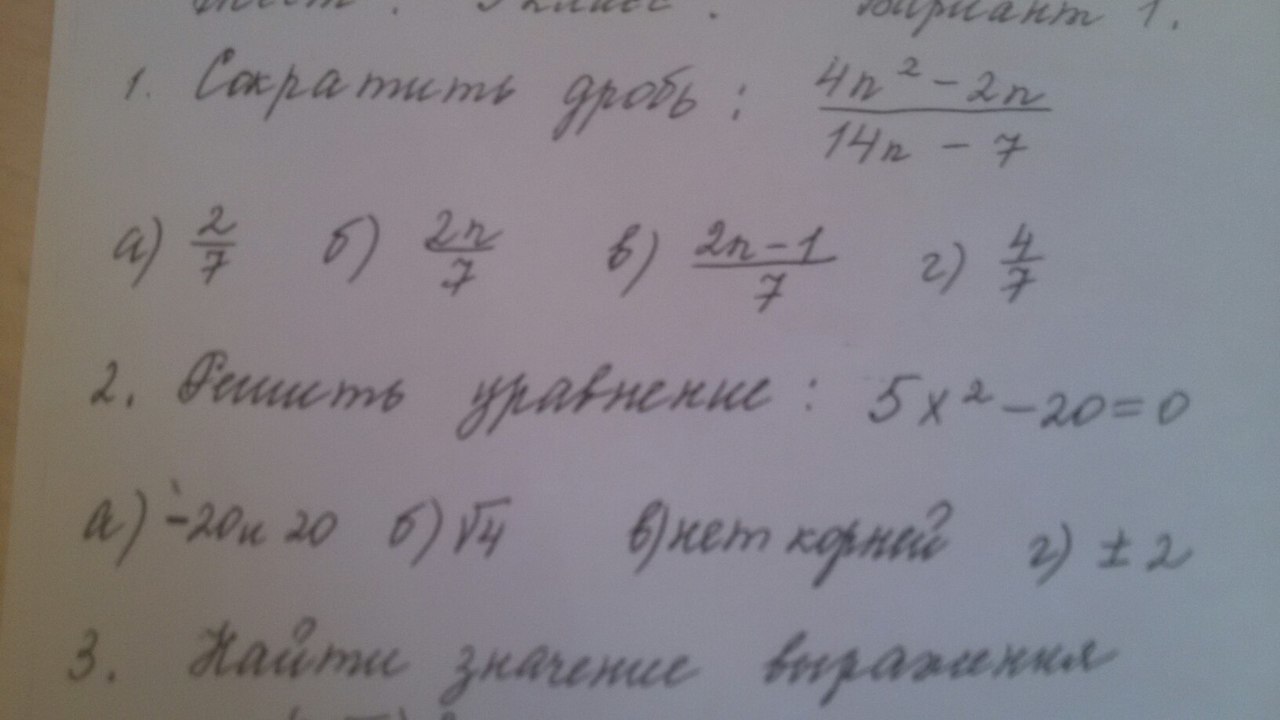 класс. Вариант 1.
1. Сократить дробь: (4n² - 2n)/(14n - 7)
а) 2/7 б) 2n/7 в) (2n-1)/7 г) 4/7
2. Решить уравнение: 5x² - 20 = 0
а) -20 и 20 б) √4 в) нет корней г) ± 2
3. Найти значение выражения